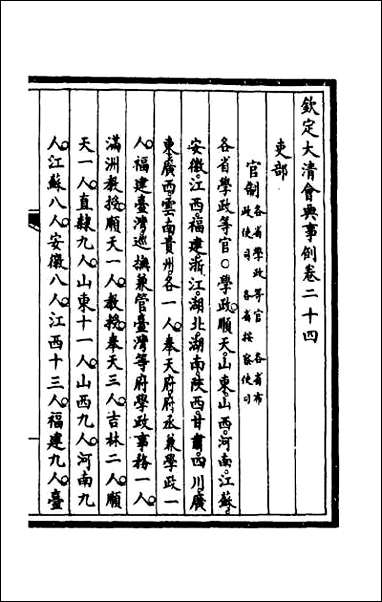 欽定大清會典事例卷二十四
吏部
官制 各省學政等官 各省布政使司 各省按察使司
各省學政等官○學政順天。山東。山西。河南。江蘇。
安徽。江西。福建。浙江。湖北。湖南。陝西。甘肅。四川。廣
東。廣西。雲南。貴州。各一人。奉天府府丞兼學政一
人。福建臺灣巡撫兼管臺灣等府學政事務一人。
滿洲教授順天一人。教授奉天三人。吉林二人。順
天一人。直隸九人。山東十一人。山西九人。河南九
人。江蘇八人。安徽八人。江西十三人。福建九人。臺